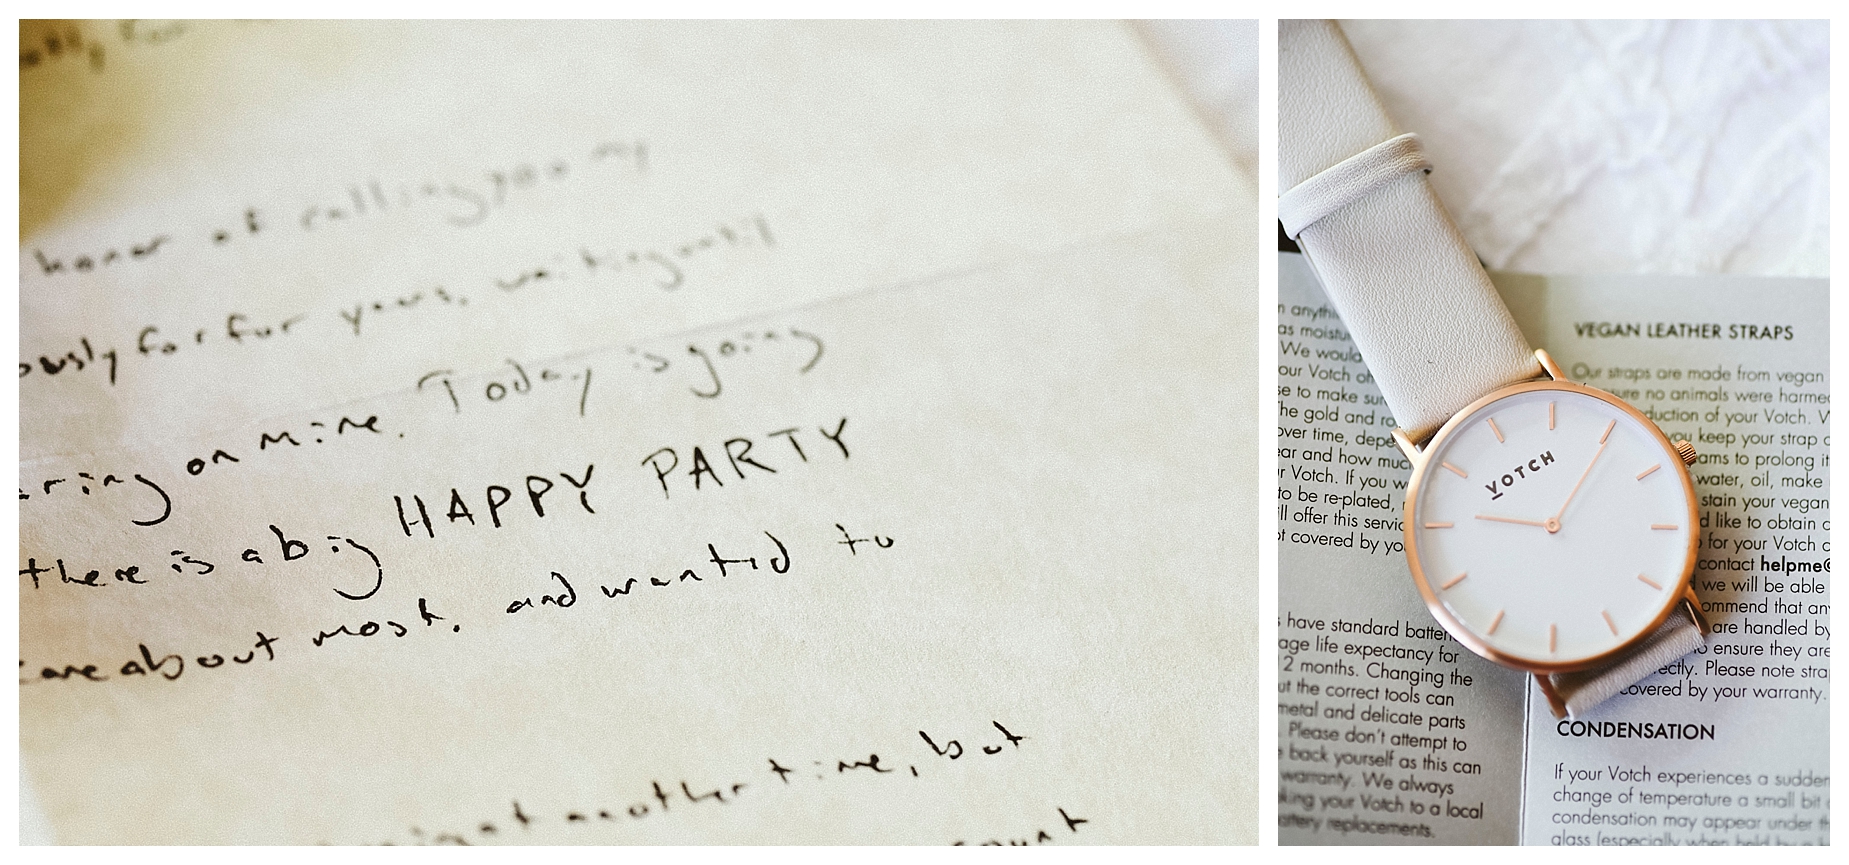 honor of calling you my
ously for fur years, waiting until
aring on mine. Today is going
there is a big HAPPY PARTY
care about most, and wanted to
another time, but
count
VOTCH
n anythi
as moistu
We would
our Votch oth
se to make sur
he gold and ro
over time, depe
ear and how much
r Votch. If you w
to be re-plated,
ill offer this servic
ot covered by yo
have standard batter
age life expectancy for
2 months. Changing the
ut the correct tools can
metal and delicate parts
Please don't attempt to
back yourself as this can
warranty. We always
king your Votch to a local
attery replacements.
VEGAN LEATHER STRAPS
Our straps are made from vegan
ure no animals were harmed
duction of your Votch. W
you keep your strap
ams to prolong it
water, oil, make
stain your vegan
d like to obtain
for your Votch
contact helpme@
we will be able
ommend that any
are handled by
o ensure they are
ectly. Please note stra
covered by your warranty.
CONDENSATION
If your Votch experiences a sudden
change of temperature a small bit
condensation may appear under th
glass (especially when held by